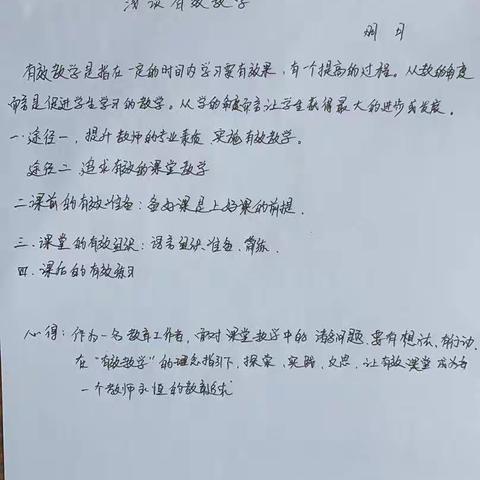 浅谈有效教学
有效教学是指在一定的时间内学习要有效果,有个提高的过程。从教的角度
而言是促进学生学习的教学。从学的角度而言让学生获得最大的进步或发展。
一.途径一,提升教师的专业素质 实施有效教学。
途径二 追求有效的课堂教学
二.课前的有效准备:备好课是上好课的前提.
三.课堂的有效组织:语言组织.准备.
四.课后的有效练习
心得:作为一名教育工作者,面对课堂教学中的诸多问题,要有想法、有行动.
在“有效教学”的理念指引下,探索、实践、反思、让有效课堂成为每
一个教师永恒的教育追求